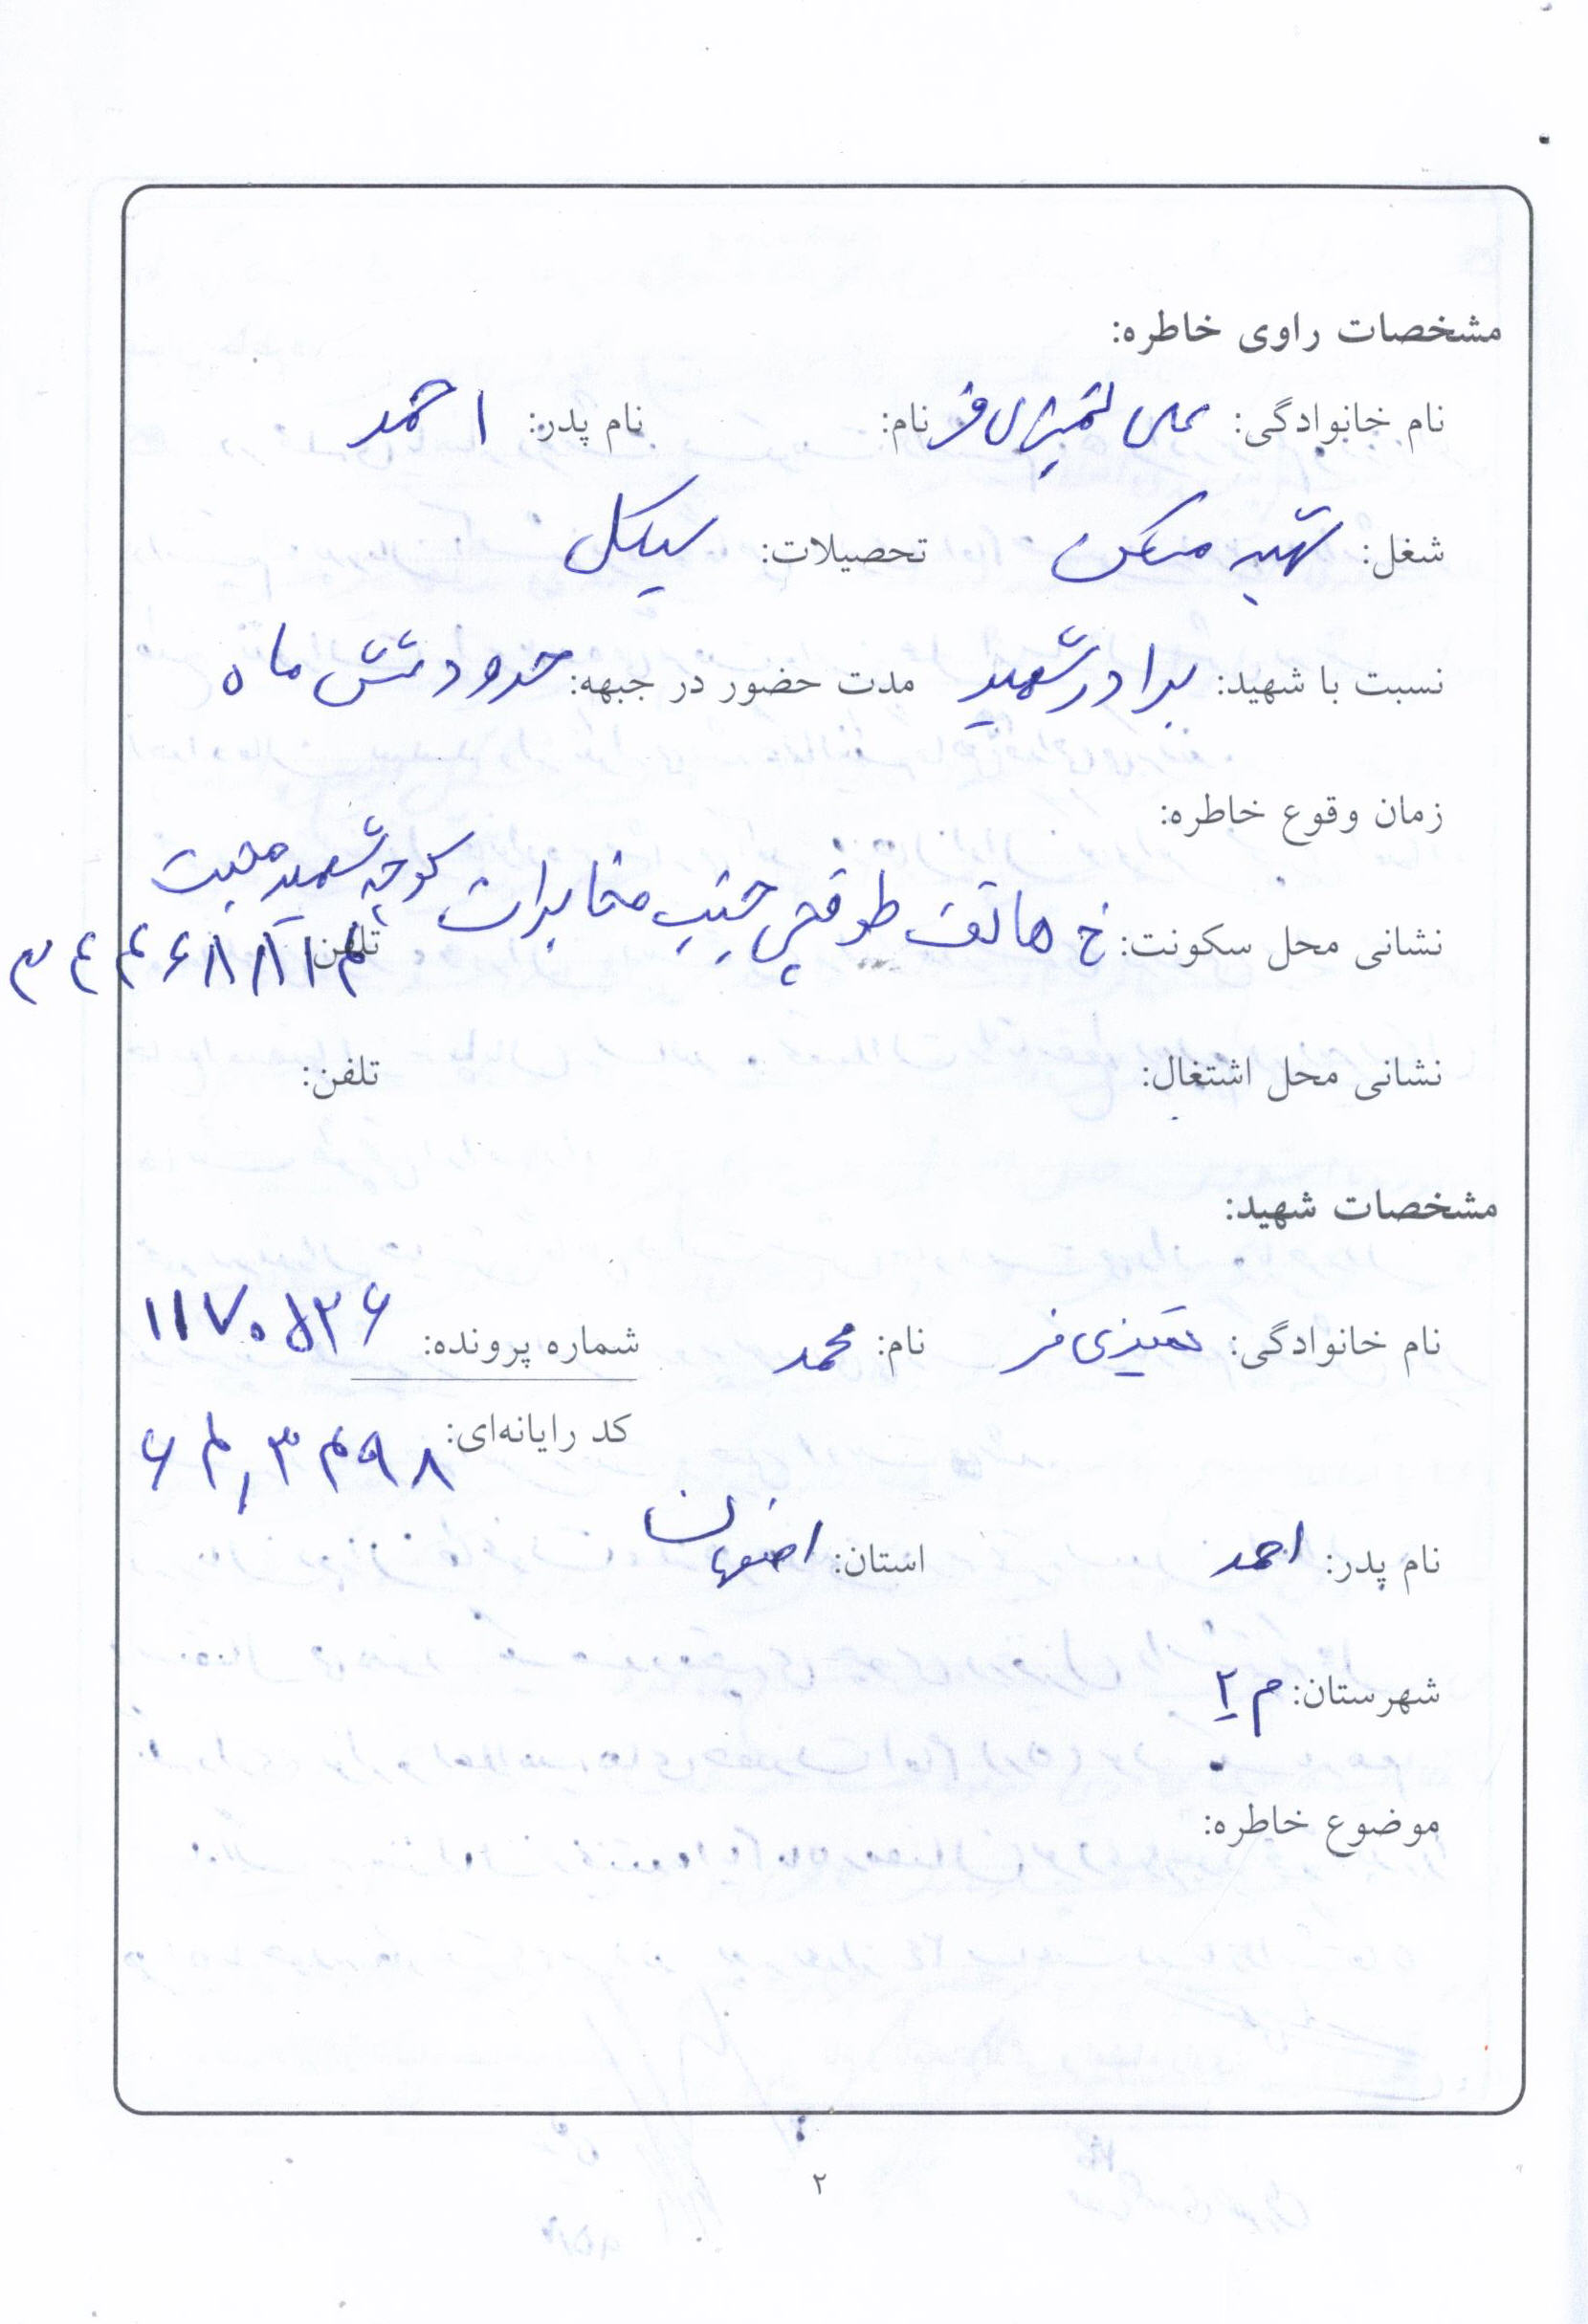 مشخصات راوی خاطره:
نام خانوادگی: علی تمیزی فر نام: نام پدر: احمد
شغل: تهیه مسکن تحصیلات: سیکل
نسبت با شهید: برادر شهید مدت حضور در جبهه: حدود شش ماه
زمان وقوع خاطره:
نشانی محل سکونت: خ هاتف طوقچی جنب مخابرات کوچه شهید محبت تلفن:
نشانی محل اشتغال: تلفن:
مشخصات شهید:
نام خانوادگی: تمیزی فر نام: محمد شماره پرونده: ۱۱۷۰۵۳۶
کد رایانه‌ای:
نام پدر: احمد استان: اصفهان
شهرستان: م ۲
موضوع خاطره:
۲